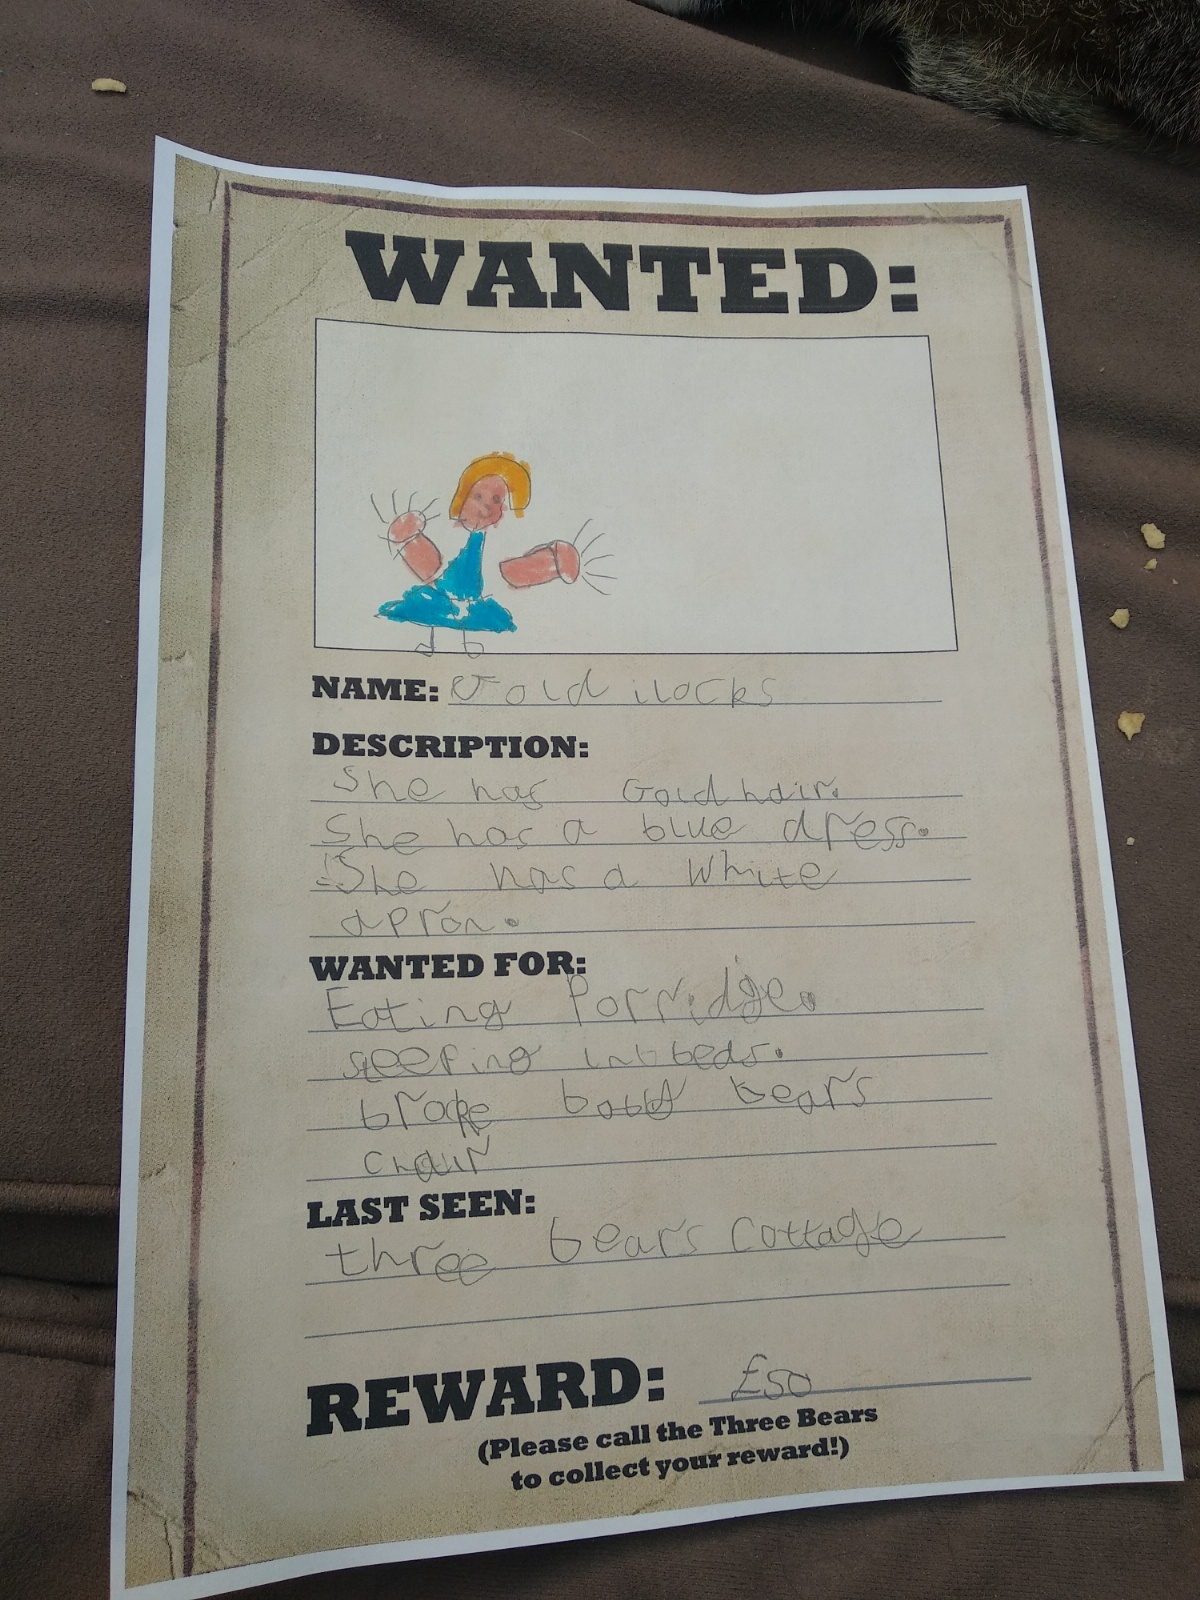 WANTED:
NAME: Gold ilocks
DESCRIPTION:
She has Gold hair.
She has a blue dress.
She has a White
apron.
WANTED FOR:
Eating Porridge.
sleeping in beds.
broke bears
chair
LAST SEEN:
three bears cottage
REWARD: £50
(Please call the Three Bears
to collect your reward!)